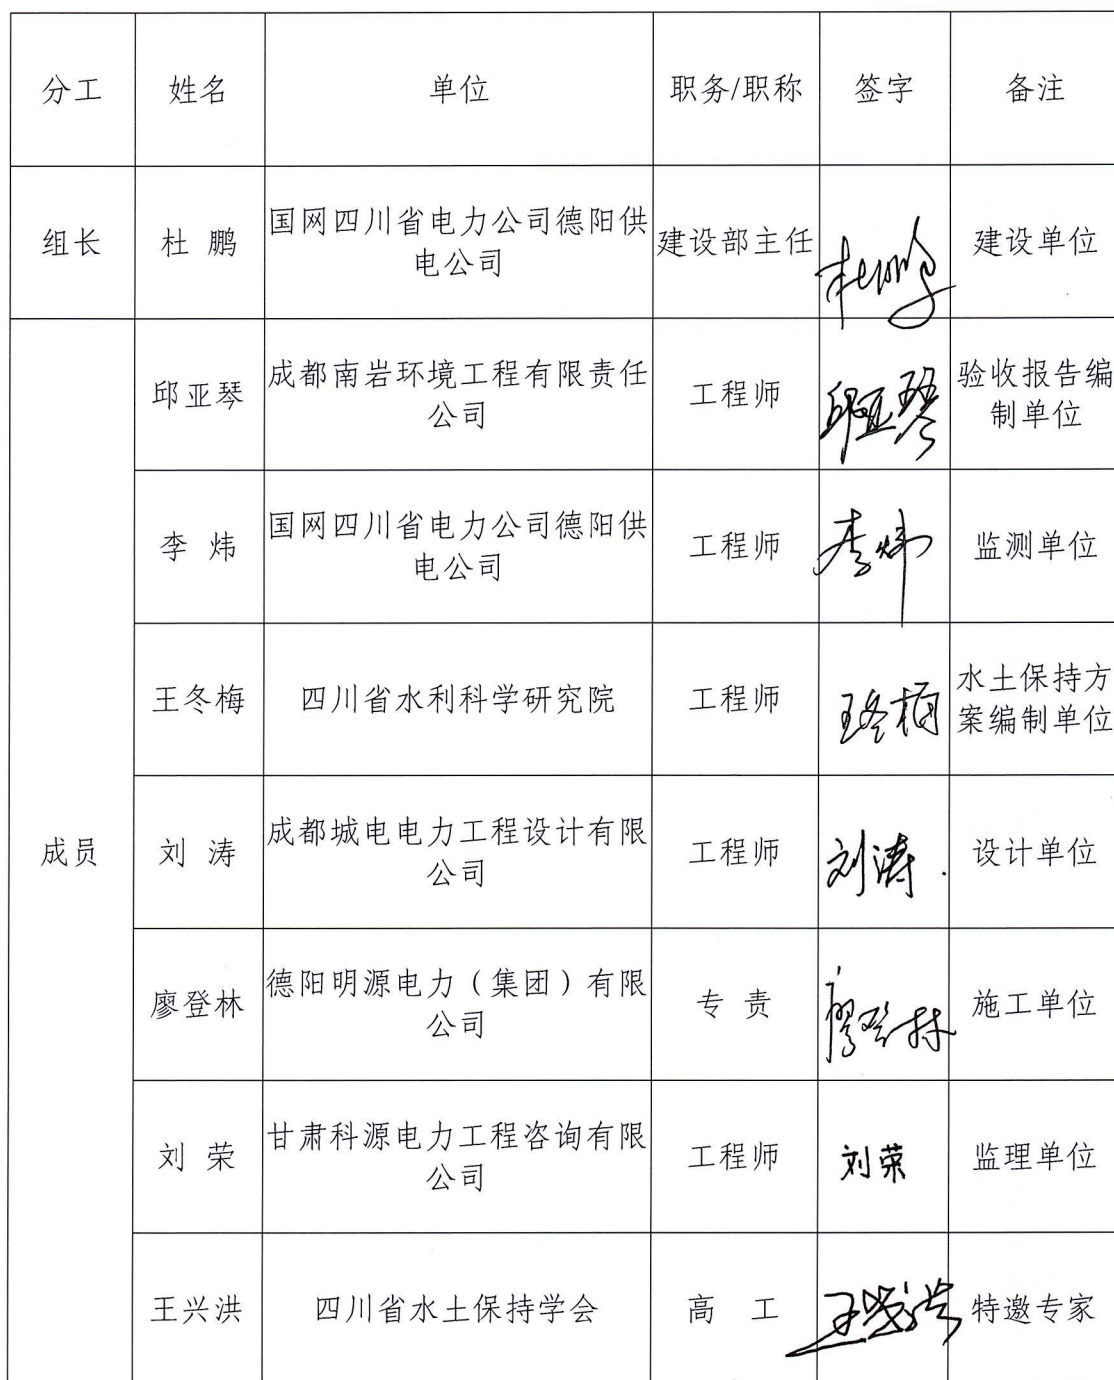 分工 姓名 单位 职务/职称 签字 备注
组长 杜 鹏 国网四川省电力公司德阳供 建设部主任 杜鹏 建设单位
电公司
成员
邱亚琴 成都南岩环境工程有限责任 工程师 邱亚琴 验收报告编
公司 制单位
李 炜 国网四川省电力公司德阳供 工程师 李炜 监测单位
电公司
王冬梅 四川省水利科学研究院 工程师 王冬梅 水土保持方
案编制单位
刘 涛 成都城电电力工程设计有限 工程师 刘涛 设计单位
公司
廖登林 德阳明源电力（集团）有限 专 责 廖登林 施工单位
公司
刘 荣 甘肃科源电力工程咨询有限 工程师 刘荣 监理单位
公司
王兴洪 四川省水土保持学会 高 工 王兴洪 特邀专家